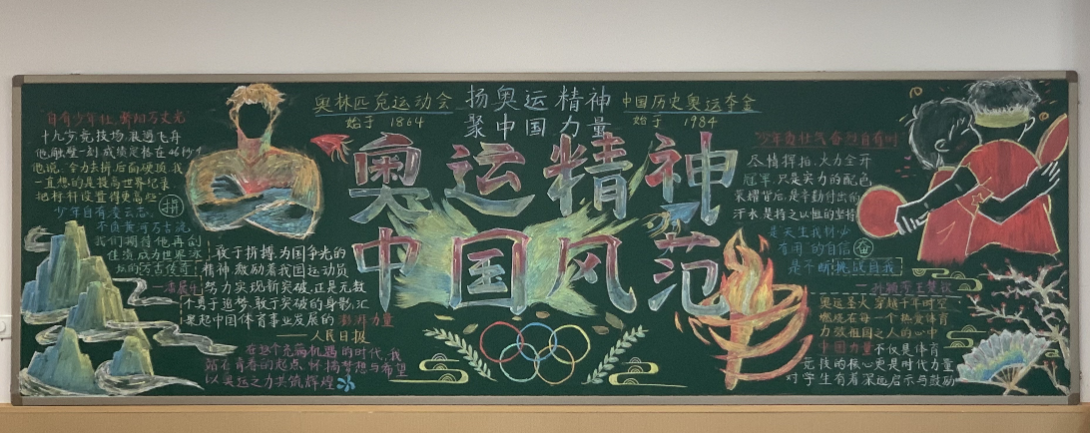 奥林匹克运动会 扬奥运精神 中国历史奥运夺金
始于 1864 聚中国力量 始于 1984
奥运精神
中国风范
自有少年狂
十九岁竞技场
他触壁一刻成绩定格在46秒4
他说
一直想的是提高世界纪录
把杆杆设置得更高些
少年自有凌云志。拼
不负黄河万古流
我们期待他再创
佳绩成为世界泳
坛的万古传奇
敢于拼搏、为国争光的
精神激励着我国运动员
努力实现新突破.正是无数
个勇于追梦、敢于突破的身影,汇
聚起中国体育事业发展的 澎湃力量
——人民日报
在这个充满机遇的时代,我
站在青春的起点怀揣梦想与希望
以奥运之力共筑辉煌
少年勇壮气奋烈自有时
尽情挥拍,火力全开
冠军只是实力的配色
荣耀背后,是辛勤付出的
汗水是持之以恒的坚持
是天生我材必
有用的自信 奋
是不断挑战自我
奥运圣火穿越千年时空
燃烧在每一个热爱体育
力强祖国之人的心中
中国力量不仅是体育
竞技的核心更是时代力量
对学生有着深远启示与鼓励